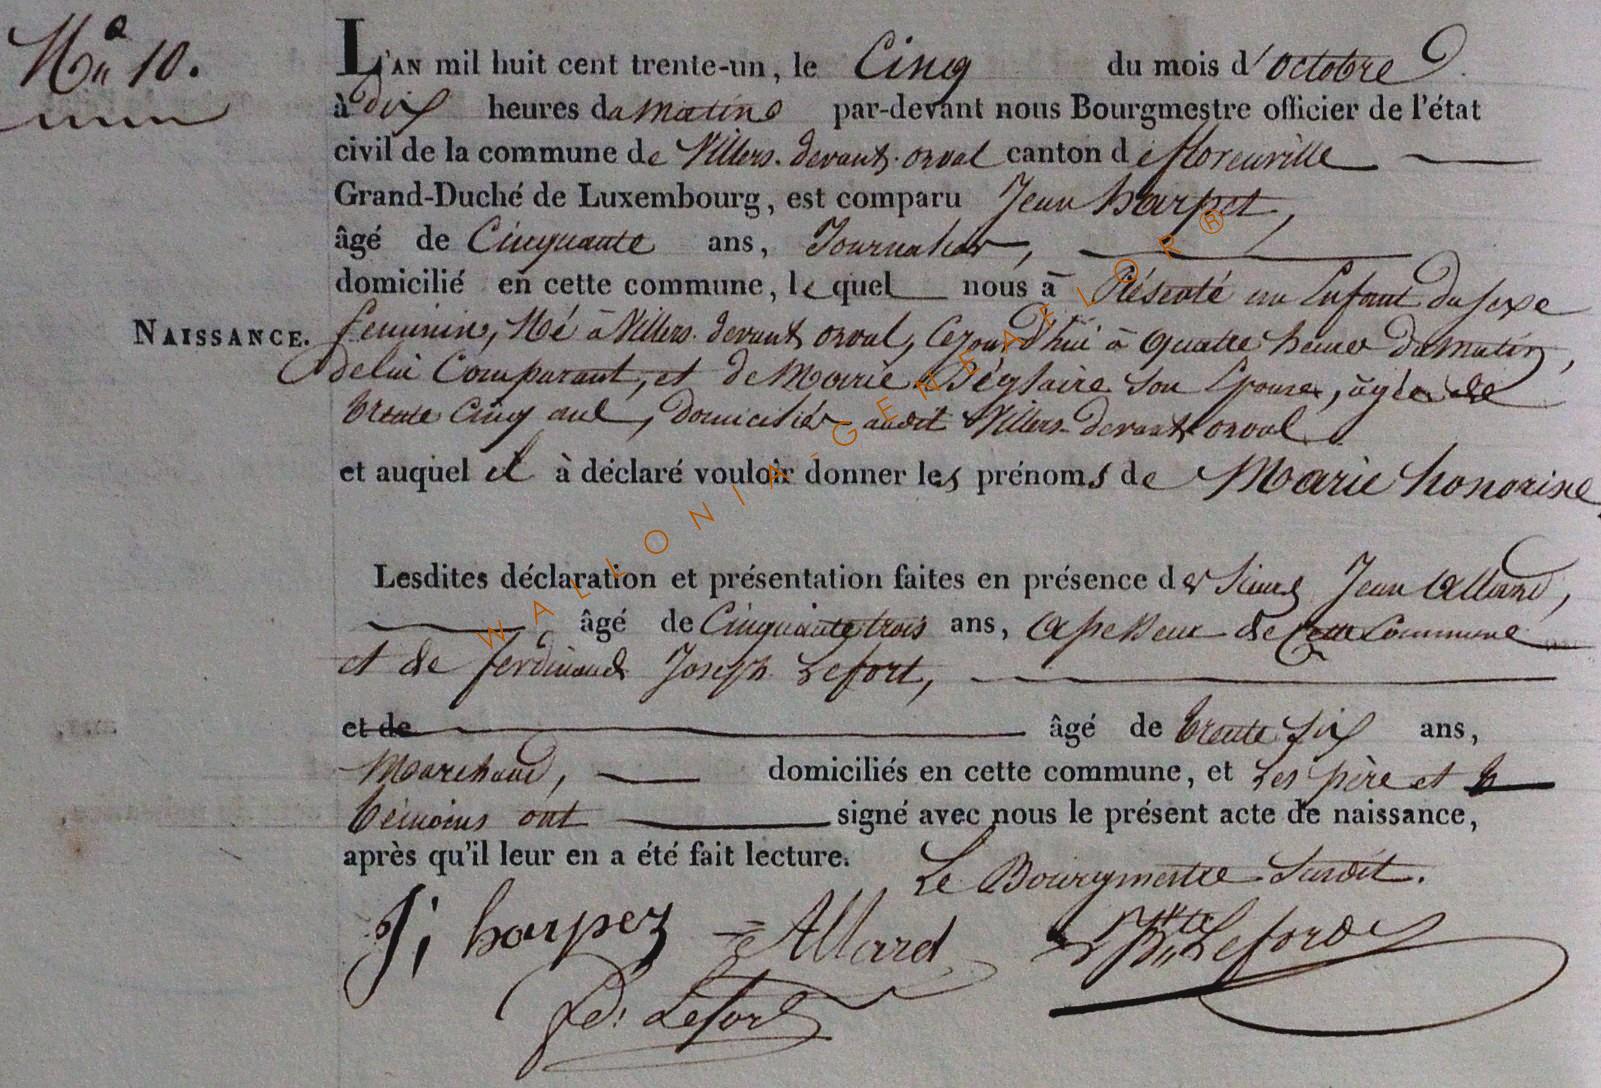 No 10.
L'AN mil huit cent trente-un, le Cinq du mois d'octobre
à dix heures du matin par-devant nous Bourgmestre officier de l'état
civil de la commune de Villers-devant-orval canton de florenville
Grand-Duché de Luxembourg, est comparu Jean harpet,
âgé de Cinquante ans, Journalier,
domicilié en cette commune, lequel nous à Présenté un Enfant du sexe
NAISSANCE.
feminin, Né à Villers-devant orval, Cejourd'hui à quatre heures du matin,
de lui Comparant, et de Marie son Epouse, agée de
trente Cinq ans, Domiciliés audit Villers-devant orval
et auquel il à déclaré vouloir donner les prénoms de Marie honorine,
Lesdites déclaration et présentation faites en présence des Sieurs Jean Allard,
âgé de Cinquante trois ans, de Cette Commune
et de ferdinand Joseph Lefort,
et de âgé de trente six ans,
Marchand, domiciliés en cette commune, et Les père et
témoins ont signé avec nous le présent acte de naissance,
après qu'il leur en a été fait lecture.
Le Bourgmestre Susdit.
J; harpez Allard Lefort
fd: Lefort
WALLONIA-GENEAFLOR®